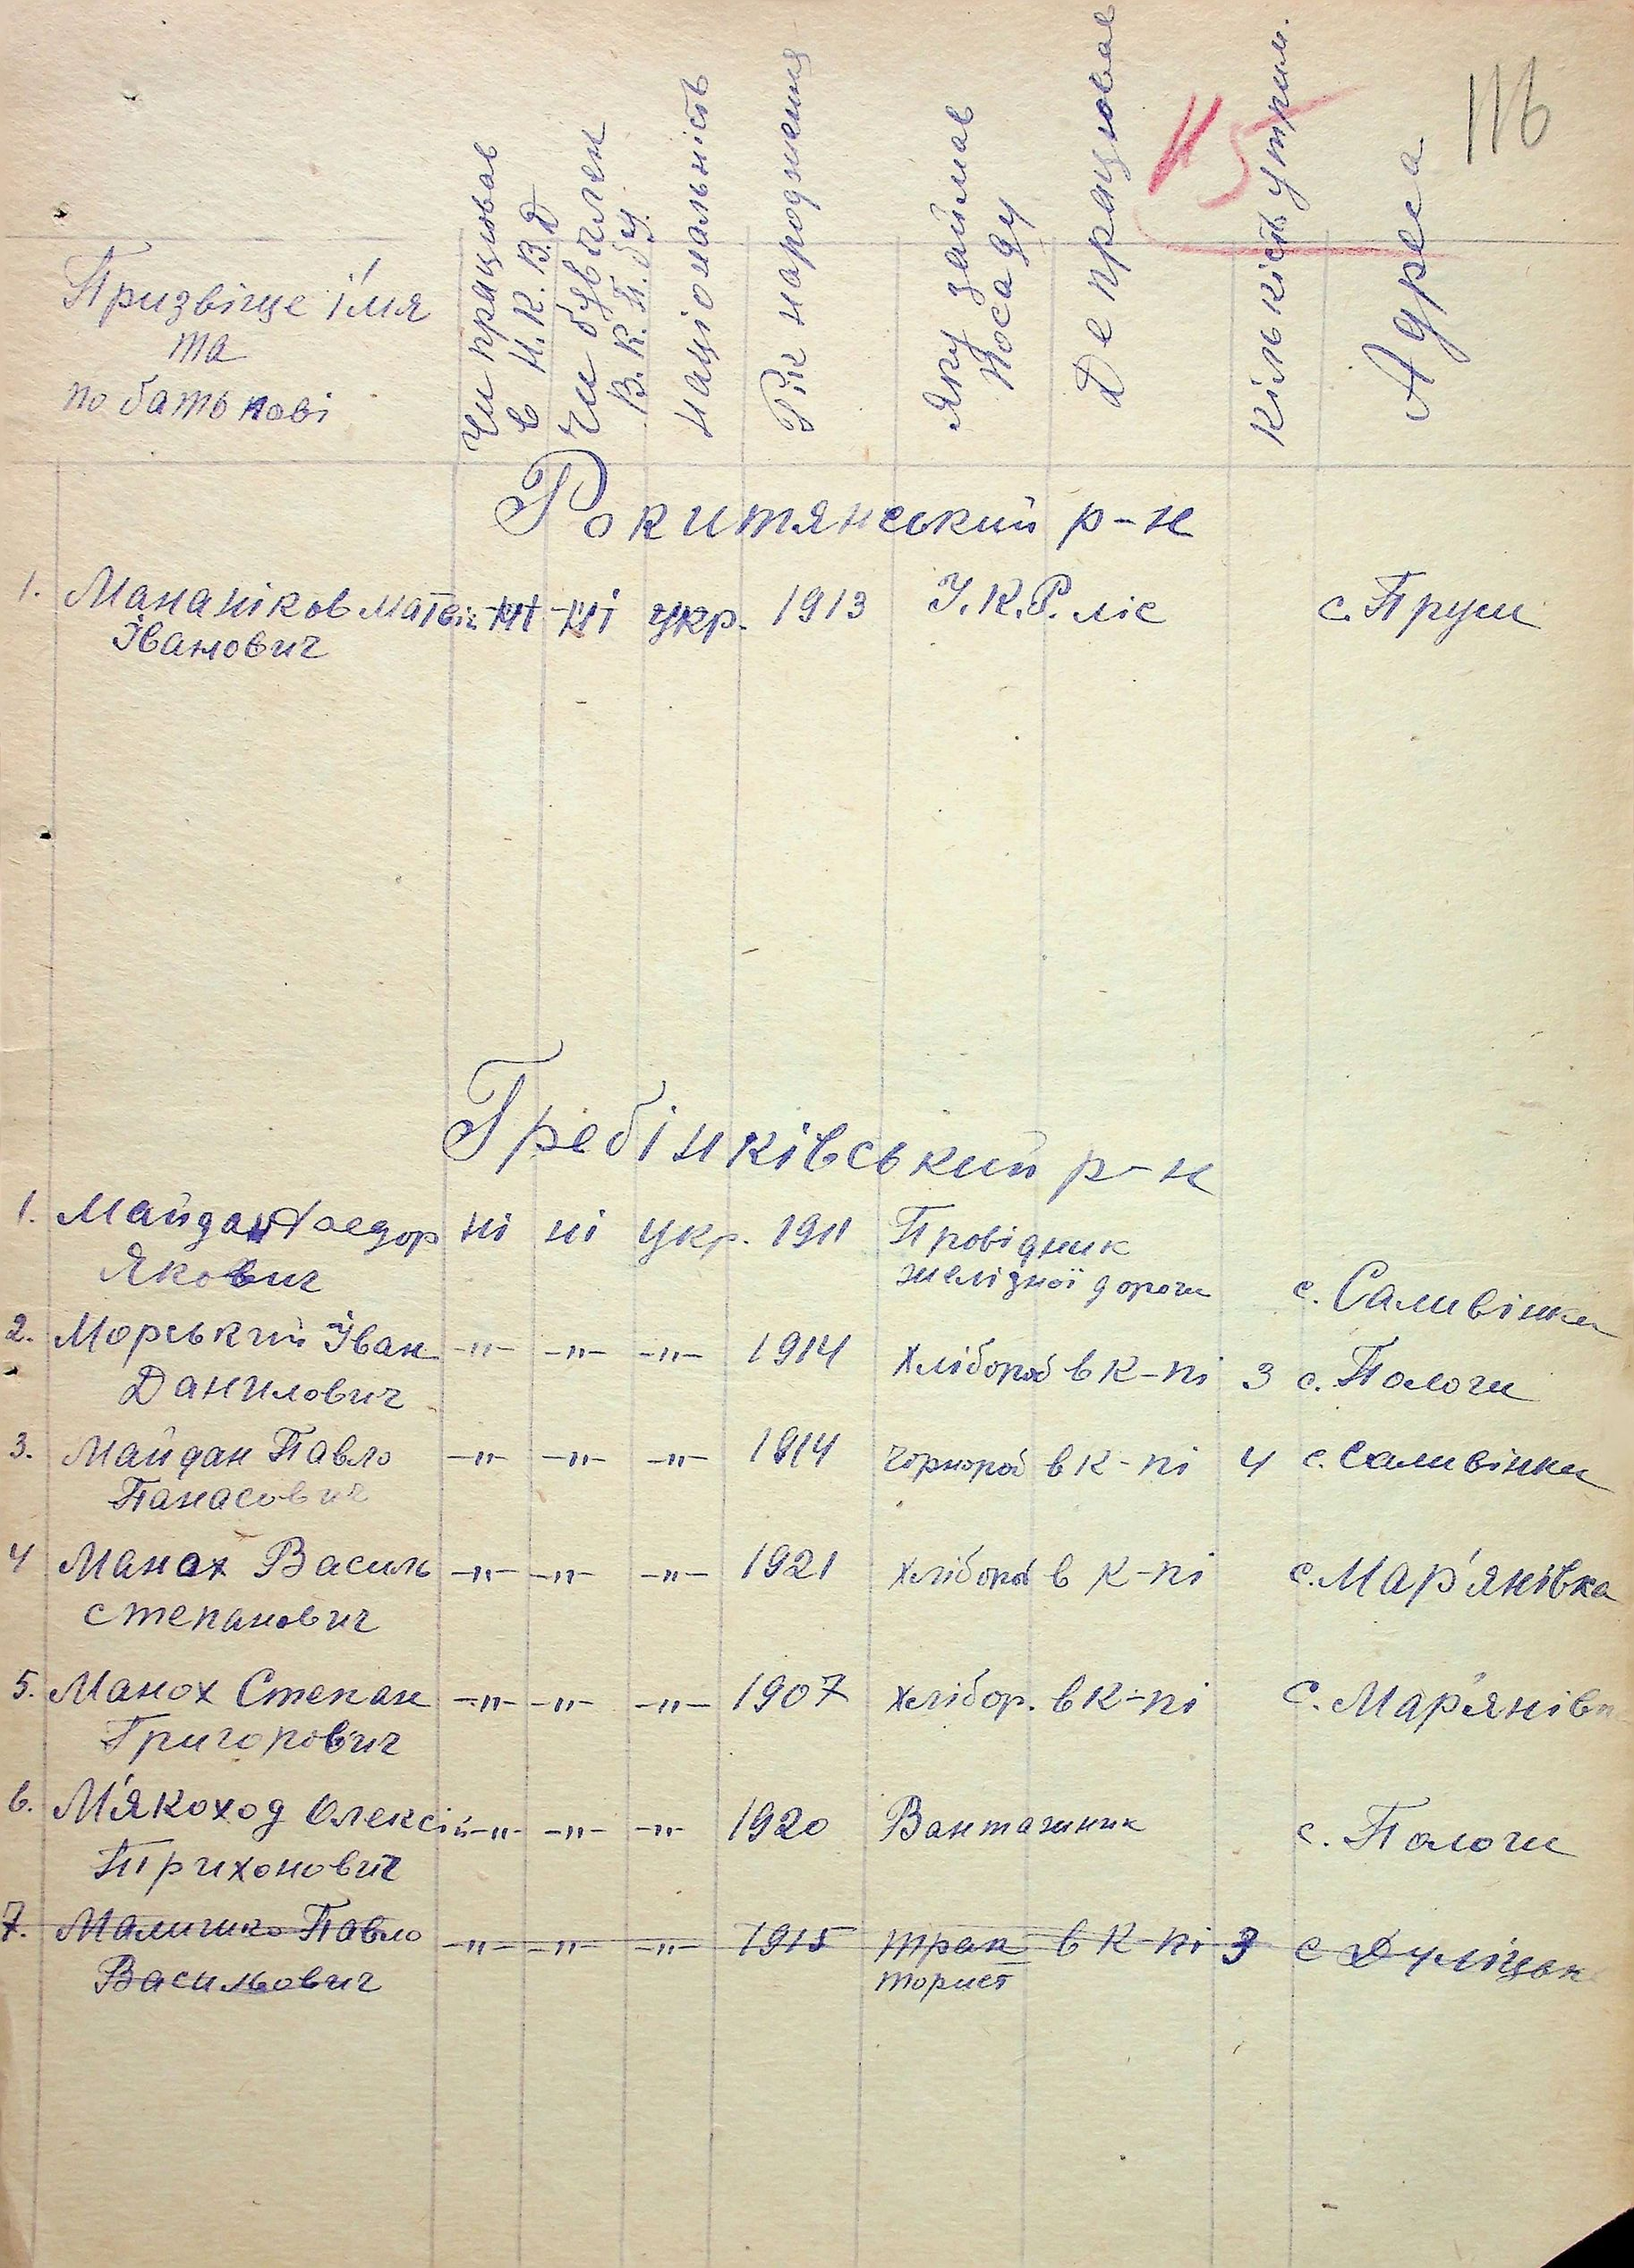 116
115
Призвіще і'мя
та
по батькові
Чи працював
в Н.К.В.Д
Чи був член
В.К.П.бу.
Національність
Рік народження
Яку займав
посаду
Де працював
Кількість утрим.
Адреса
Рокитянський р-н
1. Мананіков Матвій ні ні укр. 1913 У.К.Р. ліс с. Пруси
Іванович
Гребінківський р-н
1. Майдан Федор ні ні укр. 1911 Провідник
Якович желізної дороги с. Саливінки
2. Морський Іван -"- -"- -"- 1914 хлібороб в к-пі 3 с. Пологи
Данилович
3. Майдан Павло -"- -"- -"- 1914 чорнороб в к-пі 4 с. Саливінки
Панасович
4 Манох Василь -"- -"- -"- 1921 хлібороб в к-пі с. Мар'янівка
степанович
5. Манох Степан -"- -"- -"- 1907 хлібор. в к-пі с. Мар'янівк
Григорович
6. М'якоход Олексій -"- -"- -"- 1920 Вантажник с. Пологи
Трихонович
7. Маличко Павло -"- -"- -"- 1915 трак в к-пі 3 с
Васильович торист